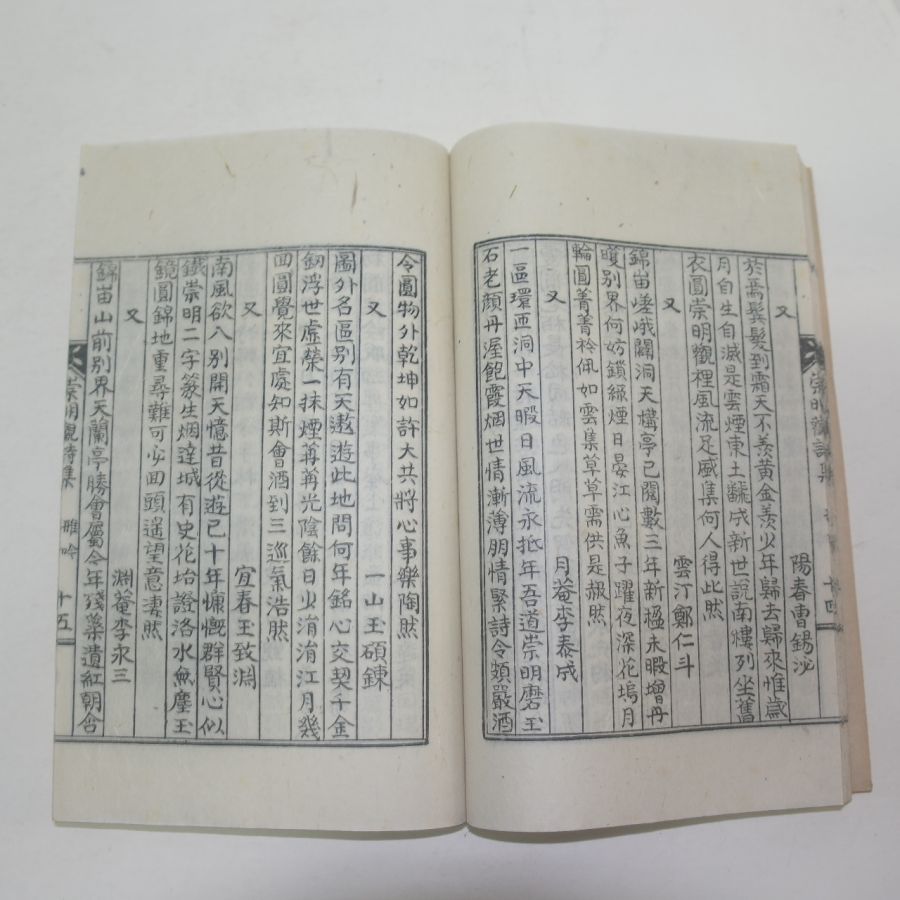 又 陽春曹錫沙
於焉鬓髮到霜天不羨黃金羨少年歸去歸來惟歲
月自生自滅是雲煙東土鷸成新世說南樓列坐舊
衣圓崇明觀裡風流足盛集何人得此然
又 雲汀鄭仁斗
錦峀嵯峨闢洞天構亭已閱數三年新極未暇增丹
雘別界何妨鎖綠煙日晏江心魚子躍夜深花塢月
輪圓菁菁衿佩如雲集草草需供是赧然
又 月菴李泰成
一區環匝洞中天暇日風流永抵年吾道崇明磨玉
石老顏丹渥飽霞烟世情漸薄朋情緊詩令類嚴酒
崇明觀詩集
令圓物外乾坤如許大共將心事樂陶然
又 一山玉碩鍊
圖外名區別有天遨遊此地問何年銘心交契千金
劒浮世虛榮一抹煙荏苒光陰餘日少涓涓江月幾
回圓覺來宜處知斯會酒到三巡氣浩然
又 宜春玉致淵
南風欲入別開天憶昔從遊已十年慷慨群賢心似
鐵崇明二字篆生烟達城有史花坮證洛水無塵玉
鏡圓錦地重尋難可必回頭遙望意凄然
又 淵菴李永三
錦峀山前別界天蘭亭勝會屬今年殘藥遺紅朝含
崇明觀詩集 雅吟 十五